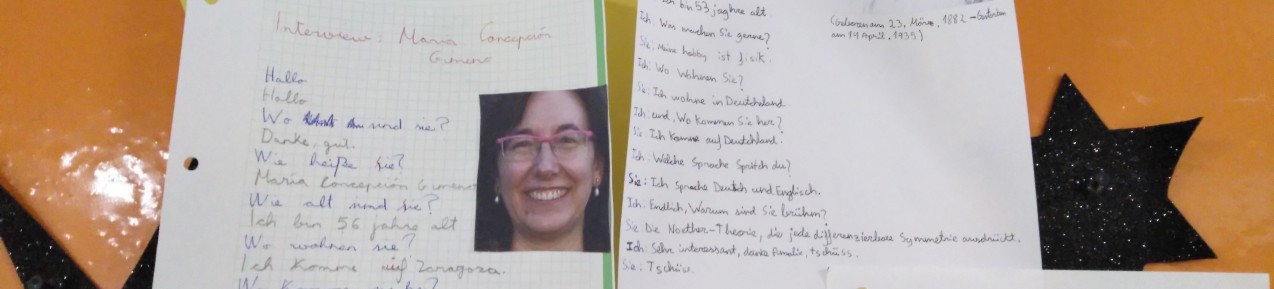 Interview: Maria Concepción
Gimeno
Hallo
Hallo
Wo und sie?
Danke, gut.
Wie heiße Sie?
Maria Concepción Gimeno
Wie alt sind sie?
Ich bin 56 jahre alt
Wo wohnen sie?
Ich komme auf Zaragoza.
Ich bin 53 jaghre alt
Ich: Was machen Sie gerne?
Sie: Meine hobby ist fisik.
Ich: Wo Wohnen Sie?
Sie: Ich wohne in Deutchsland.
Ich: und, Wo kommen Sie her?
Sie: Ich komme auf Deutchland.
Ich: Welche Sprache Sprich du?
Sie: Ich Sprache Deutch und Englisch.
Ich: Endlich, Warum sind Sie berühm?
Sie: Die Noether-Theorie, die jede differenzierbare Symmetrie ausdrückt.
Ich: Sehr interessant, danke Amalie, tschüss.
Sie: Tschüss.
(Geboren am 23. März. 1882 - Gestorben
am 14 April. 1935)